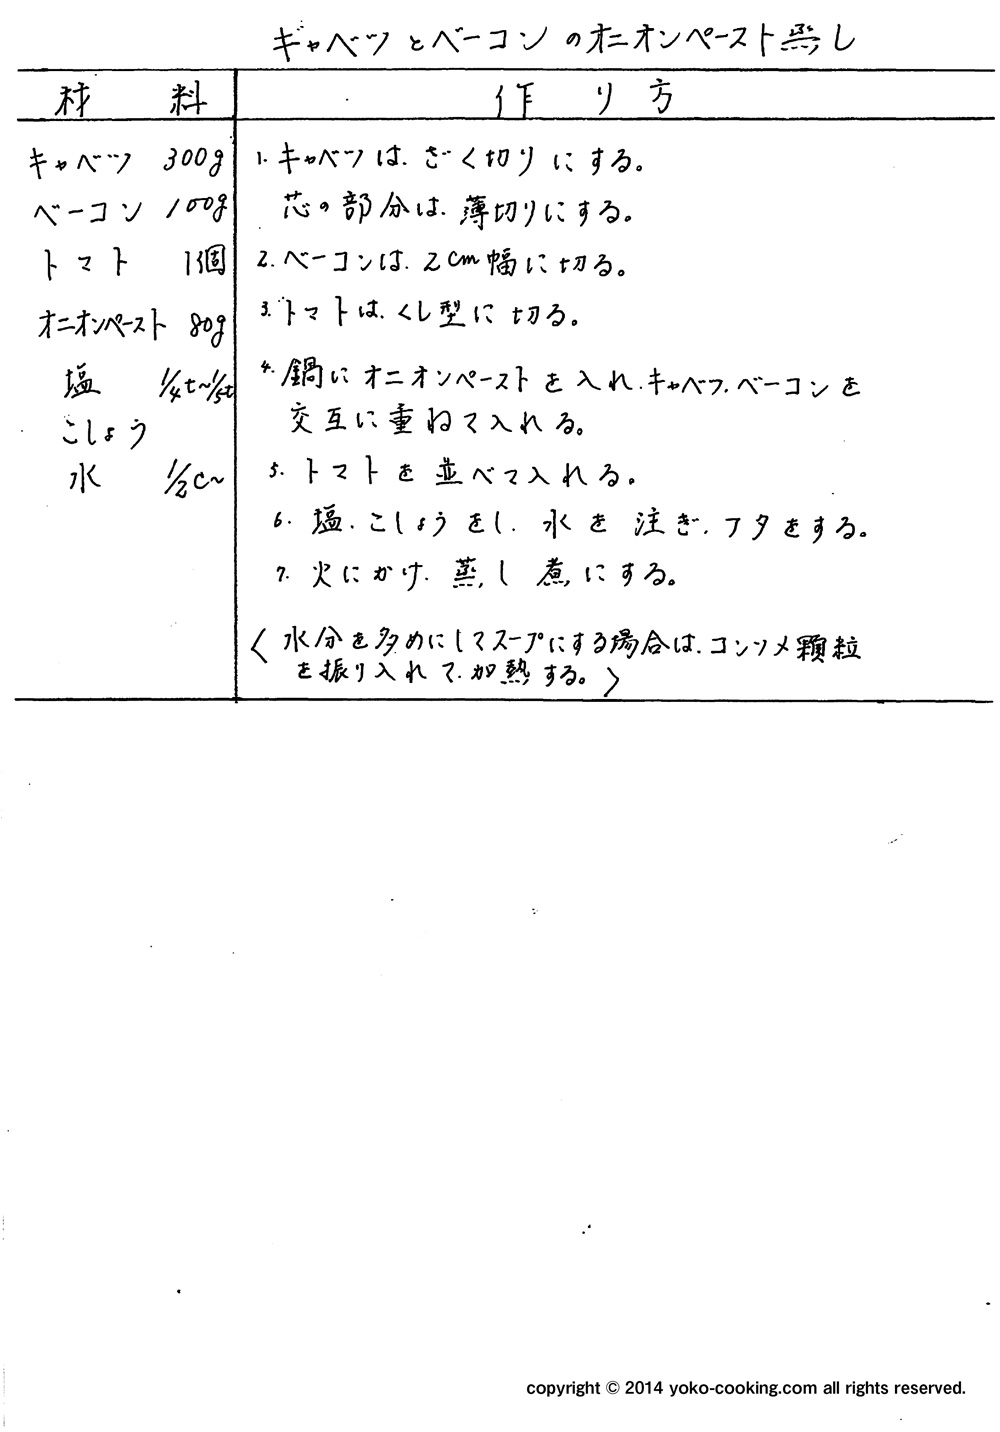 キャベツとベーコンのオニオンペースト蒸し
材料
作り方
キャベツ 300g
ベーコン 100g
トマト 1個
オニオンペースト 80g
塩 1/4t~1/5t
こしょう
水 1/2c~
1. キャベツは、ざく切りにする。
芯の部分は、薄切りにする。
2. ベーコンは、2cm幅に切る。
3. トマトは、くし型に切る。
4. 鍋にオニオンペーストを入れ、キャベツ、ベーコンを
交互に重ねて入れる。
5. トマトを並べて入れる。
6. 塩、こしょうをし、水を注ぎ、フタをする。
7. 火にかけ、蒸し煮にする。
〈水分を多めにしてスープにする場合は、コンソメ顆粒
を振り入れて、加熱する。〉
copyright © 2014 yoko-cooking.com all rights reserved.